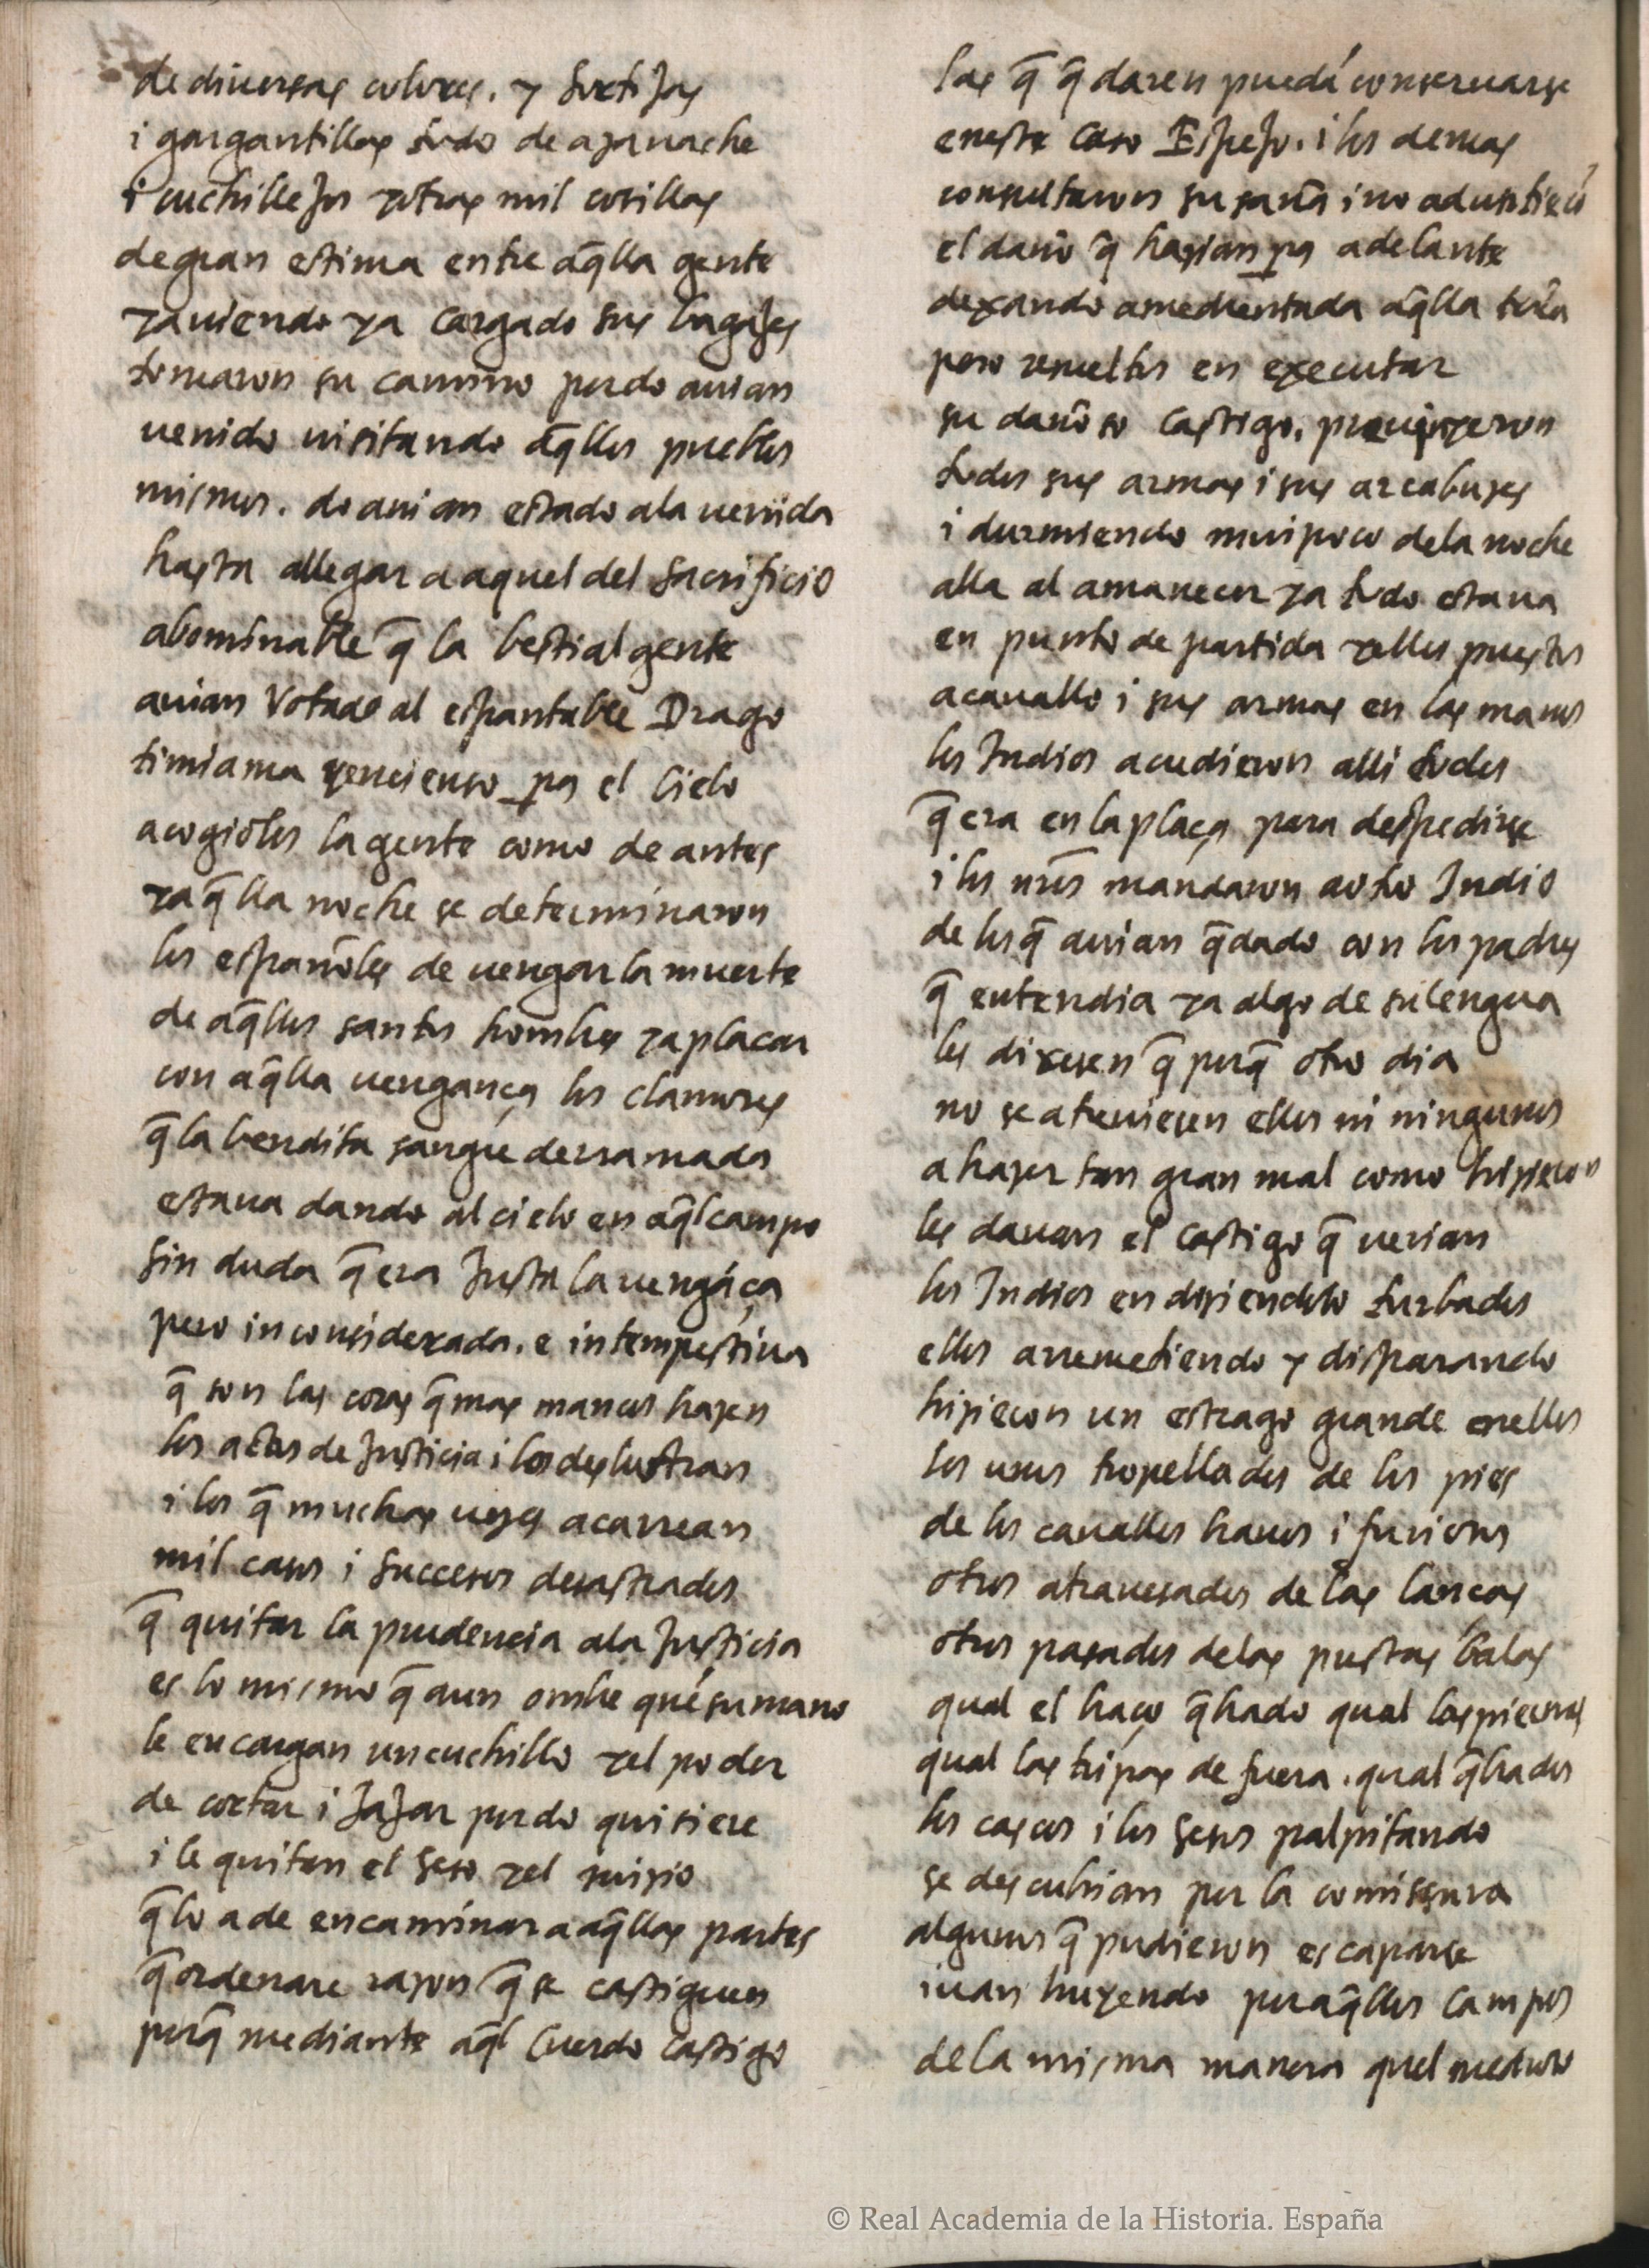 de diuersas colores. y sortijas
i gargantillas todo de azauache
i cuchillejos yotras mil cosillas
de gran estima entre aq̄lla gente
yauiendo ya cargado sus bagajes
tomaron su camino por do auian
uenido uisitando aq̄llos pueblos
mismos. do auian estado ala uenida
hasta allegar a aquel del sacrificio
abominable q̄ la bestial gente
auian Votado al espantable Drago
timiama yencienso el cielo
acogiolos la gente como de antes
yaq̄lla noche se determinaron
los españoles de uengar la muerte
de aq̄llos santos hombres yaplacar
con aq̄lla uengança los clamores
q̄ la bendita sangre derramada
estaua dando al cielo en aq̄l campo
sin duda q̄ era Justa la uengáça
pero inconsiderada. e intempestiua
q̄ son las cosas q̄ mas mancos hazen
los actos de Justicia i los deslustran
i los q̄ muchas uezes acarrean
mil casos i successos desastrados
q̄ quitar la prudencia ala Justicia
es lo mismo q̄ aun ombre qué su mano
le encargan un cuchillo yel poder
de cortar i JaJar por do quisiere
i le quitan el seso yel juizio
q̄ lo a de encaminar a aq̄llas partes
q̄ ordenare razon q̄ se castiguen
porq̄ mediante aq̄l cuerdo castigo
las q̄ q̄daren puedá conseruarse
eneste caso Espejo. i los demas
consultaron su saña i no aduirtieró
el daño q̄ hazian adelante
dexando amedrentada aq̄lla trr̄a
pero resueltos en executar
su dañoso castigo, preuinieron
todos sus armas i sus arcabuzes
i durmiendo mui poco dela noche
alla al amanecer ya todo estaua
en punto de partida yellos puestos
acauallo i sus armas en las manos
los Indios acudieron alli todos
q̄ era en la plaça para despedirse
i los nr̄os mandaron aotro Indio
de los q̄ auian q̄dado con los padres
q̄ entendia ya algo de su lengua
les dixesen q̄ porq̄ otro dia
no se atreuiesen ellos ni ningunos
a hazer tan gran mal como hizieron
les dauan el castigo q̄ uerian
los Indios en diziendolo turbados
ellos arremetiendo y disparando
hizieron un estrago grande enellos
los unos tropellados de los pies
de los cauallos brauos i furiosos
otros atrauesados de las lanças
otros pasados delas prestas balas
qual el braço q̄brado qual las piernas
qual las tripas de fuera. qual q̄brados
los cascos i los sesos palpitando
se descubrian por la comissura
algunos q̄ pudieron escaparse
iuan huyendo por aq̄llos campos
de la misma manera quel medroso
© Real Academia de la Historia. España